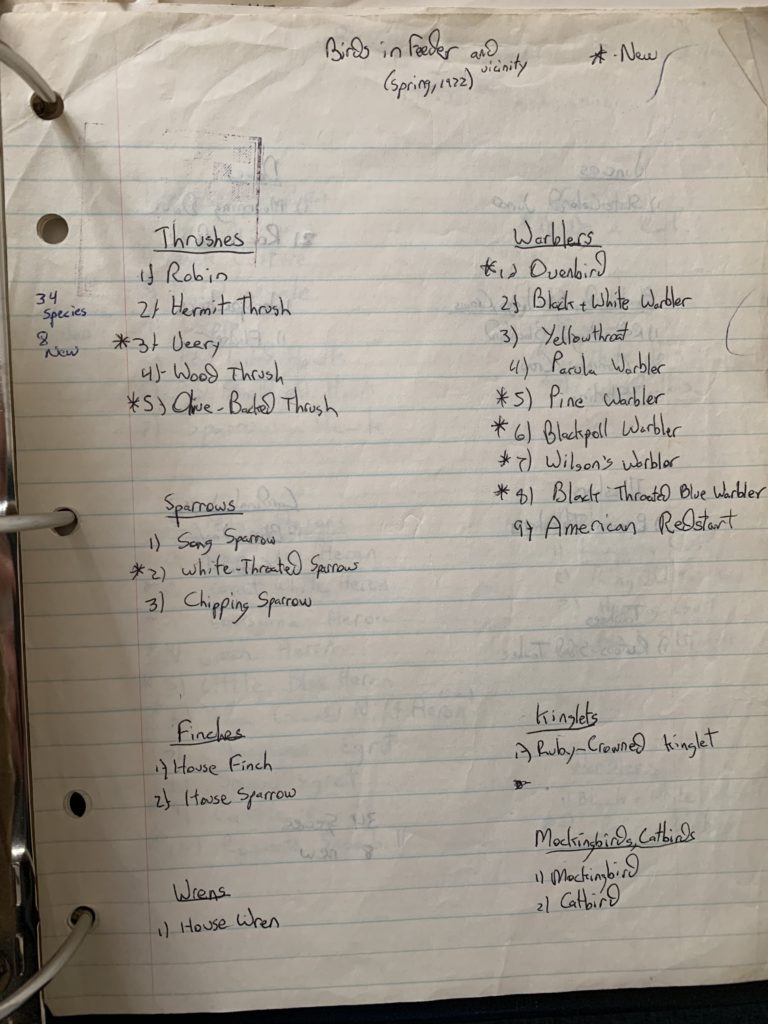 Birds in Feeder and vicinity
(Spring, 1922)
* - New
34
Species
8
New
Thrushes
1) Robin
2) Hermit Thrush
* 3) Veery
4) Wood Thrush
* 5) Olive-Backed Thrush
Warblers
* 1) Ovenbird
2) Black + White Warbler
3) Yellowthroat
4) Parula Warbler
* 5) Pine Warbler
* 6) Blackpoll Warbler
* 7) Wilson's Warbler
* 8) Black Throated Blue Warbler
9) American Redstart
Sparrows
1) Song Sparrow
* 2) White-Throated Sparrow
3) Chipping Sparrow
Finches
1) House Finch
2) House Sparrow
Kinglets
1) Ruby-Crowned Kinglet
Wrens
1) House Wren
Mockingbirds, Catbirds
1) Mockingbird
2) Catbird